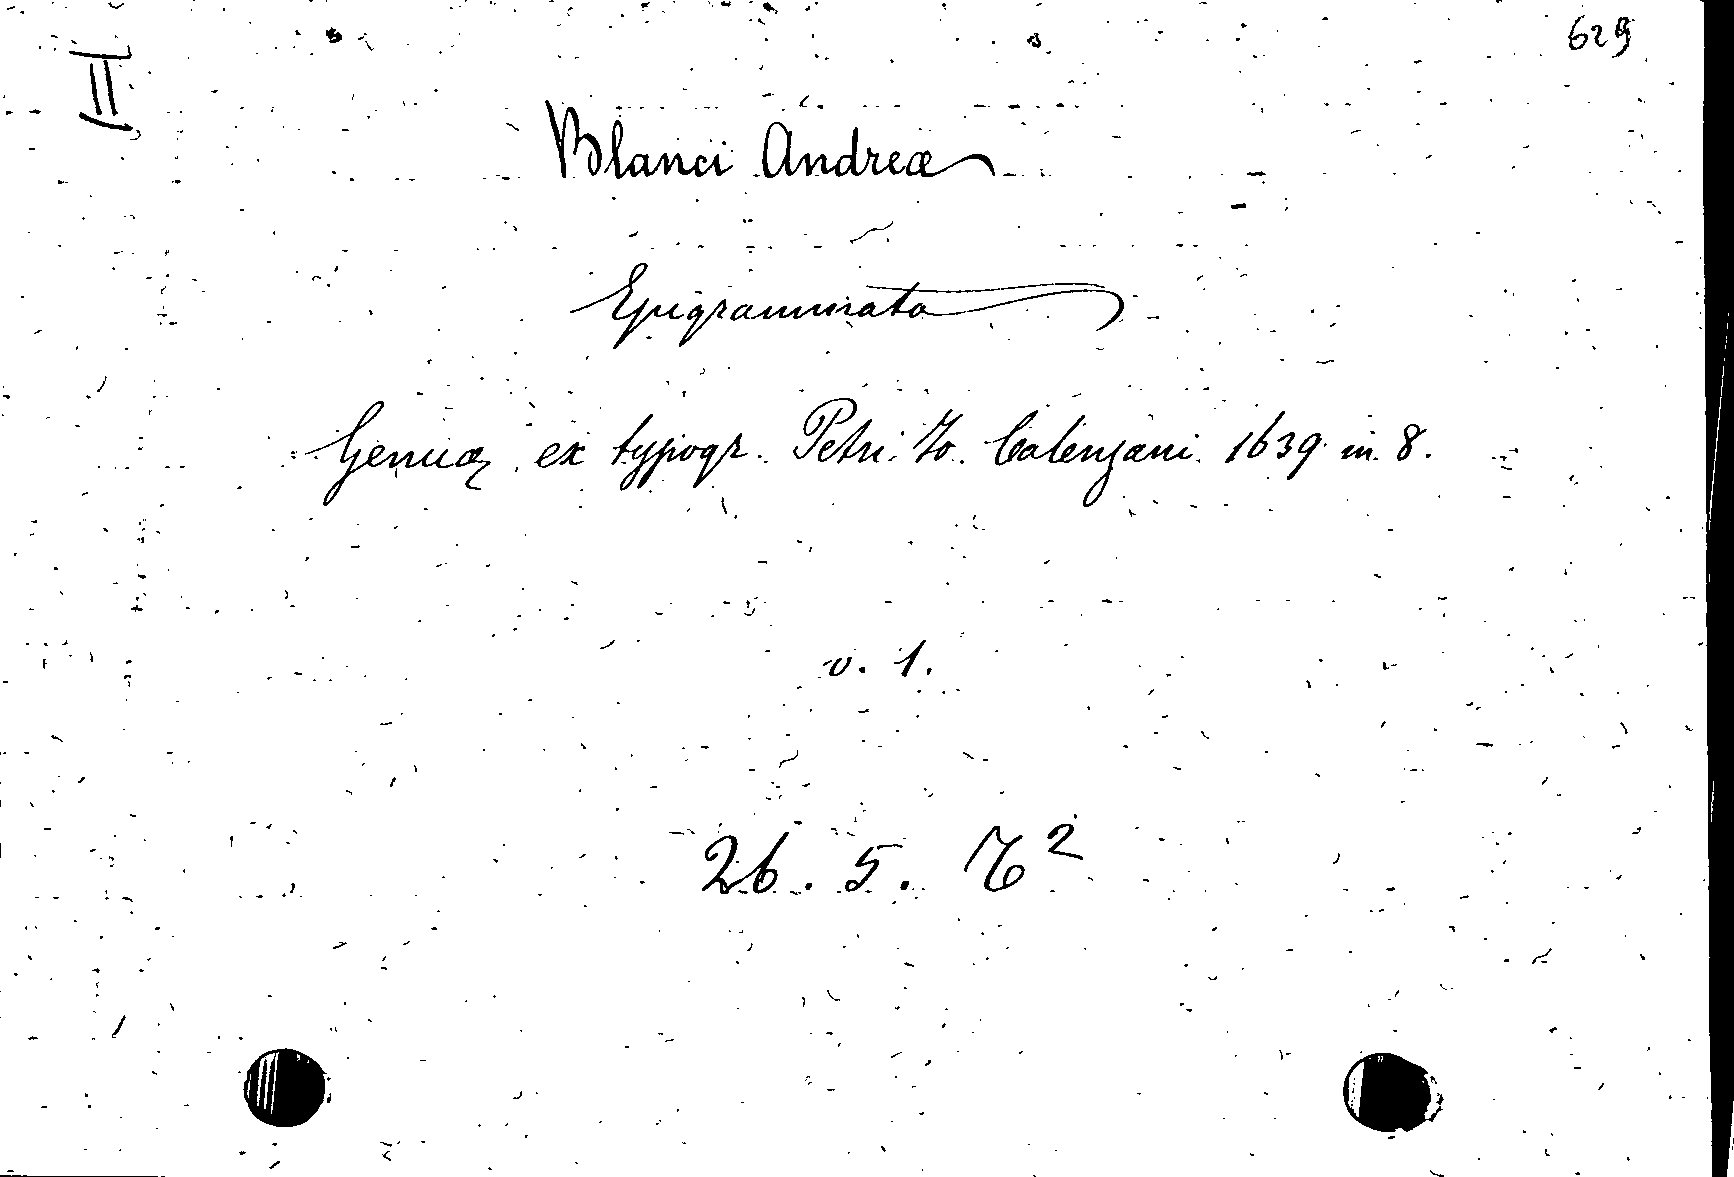 II
629
Blanci Andreæ
Epigrammata
Genuæ ex typogr. Petri Jo. Calenzani 1639 in 8.
v. 1.
26. 5.